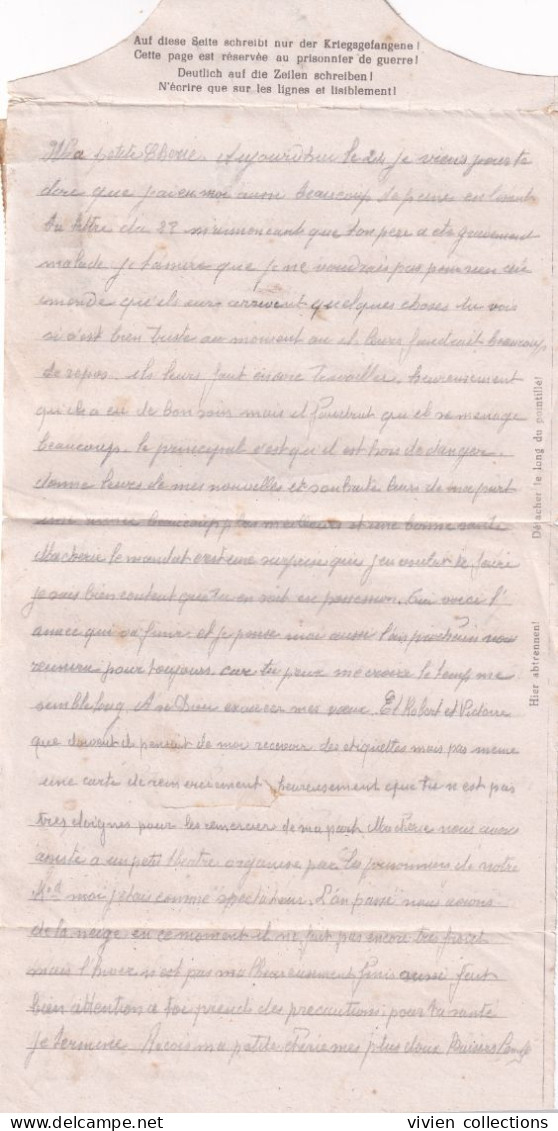 Auf diese Seite schreibt nur der Kriegsgefangene!
Cette page est réservée au prisonnier de guerre!
Deutlich auf die Zeilen schreiben!
N'écrire que sur les lignes et lisiblement!
Ma petite Aujourdhui le 24 je viens pour te
dire que moi aussi beaucoup de peine en lisant
ta lettre du 22 que ton pere a ete gravement
malade je que je ne voudrais pas pour rien
monde qu'ils leurs arrivent quelques choses tu vois
si c'est bien triste au moment ou il leurs faudrait beaucoup
de repos. ils leurs faut encore travailler. heureusement
qu'il a eu de bon soins mais il faudrait que il se menage
beaucoup. le principal c'est qu'il est hors de danger.
donne leurs de mes nouvelles et souhaite leurs de ma part
une beaucoup plus meilleurs et une bonne santé
Ma cherie le mandat c'est une surprise que j'ai voulut te faire
je suis bien content que tu en soit en possession. voici l'
année qui va finir et je pense moi aussi l'an prochain nous
reunira pour toujours car tu peux me croire le temps me
semble long Dieu mes vœux. Et Robert et Victoire
que doivent de moi recevoir des etiquettes mais pas meme
une carte de remerciement heureusement que tu n'est pas
tres eloignes pour les remercier de ma part. Ma cherie nous avons
assisté a un petit theatre organise par les prisonniers de notre
moi j'etais comme spectateur. L'an passé nous avions
de la neige en ce moment il ne fait pas encore tres froid
mais l'hiver n'est pas malheureusement finis aussi fait
bien attention a toi prend des precautions pour ta santé
je termine Recois ma petite cherie mes plus doux Baisers
Détacher le long du pointillé!
Hier abtrennen!
vivien collections